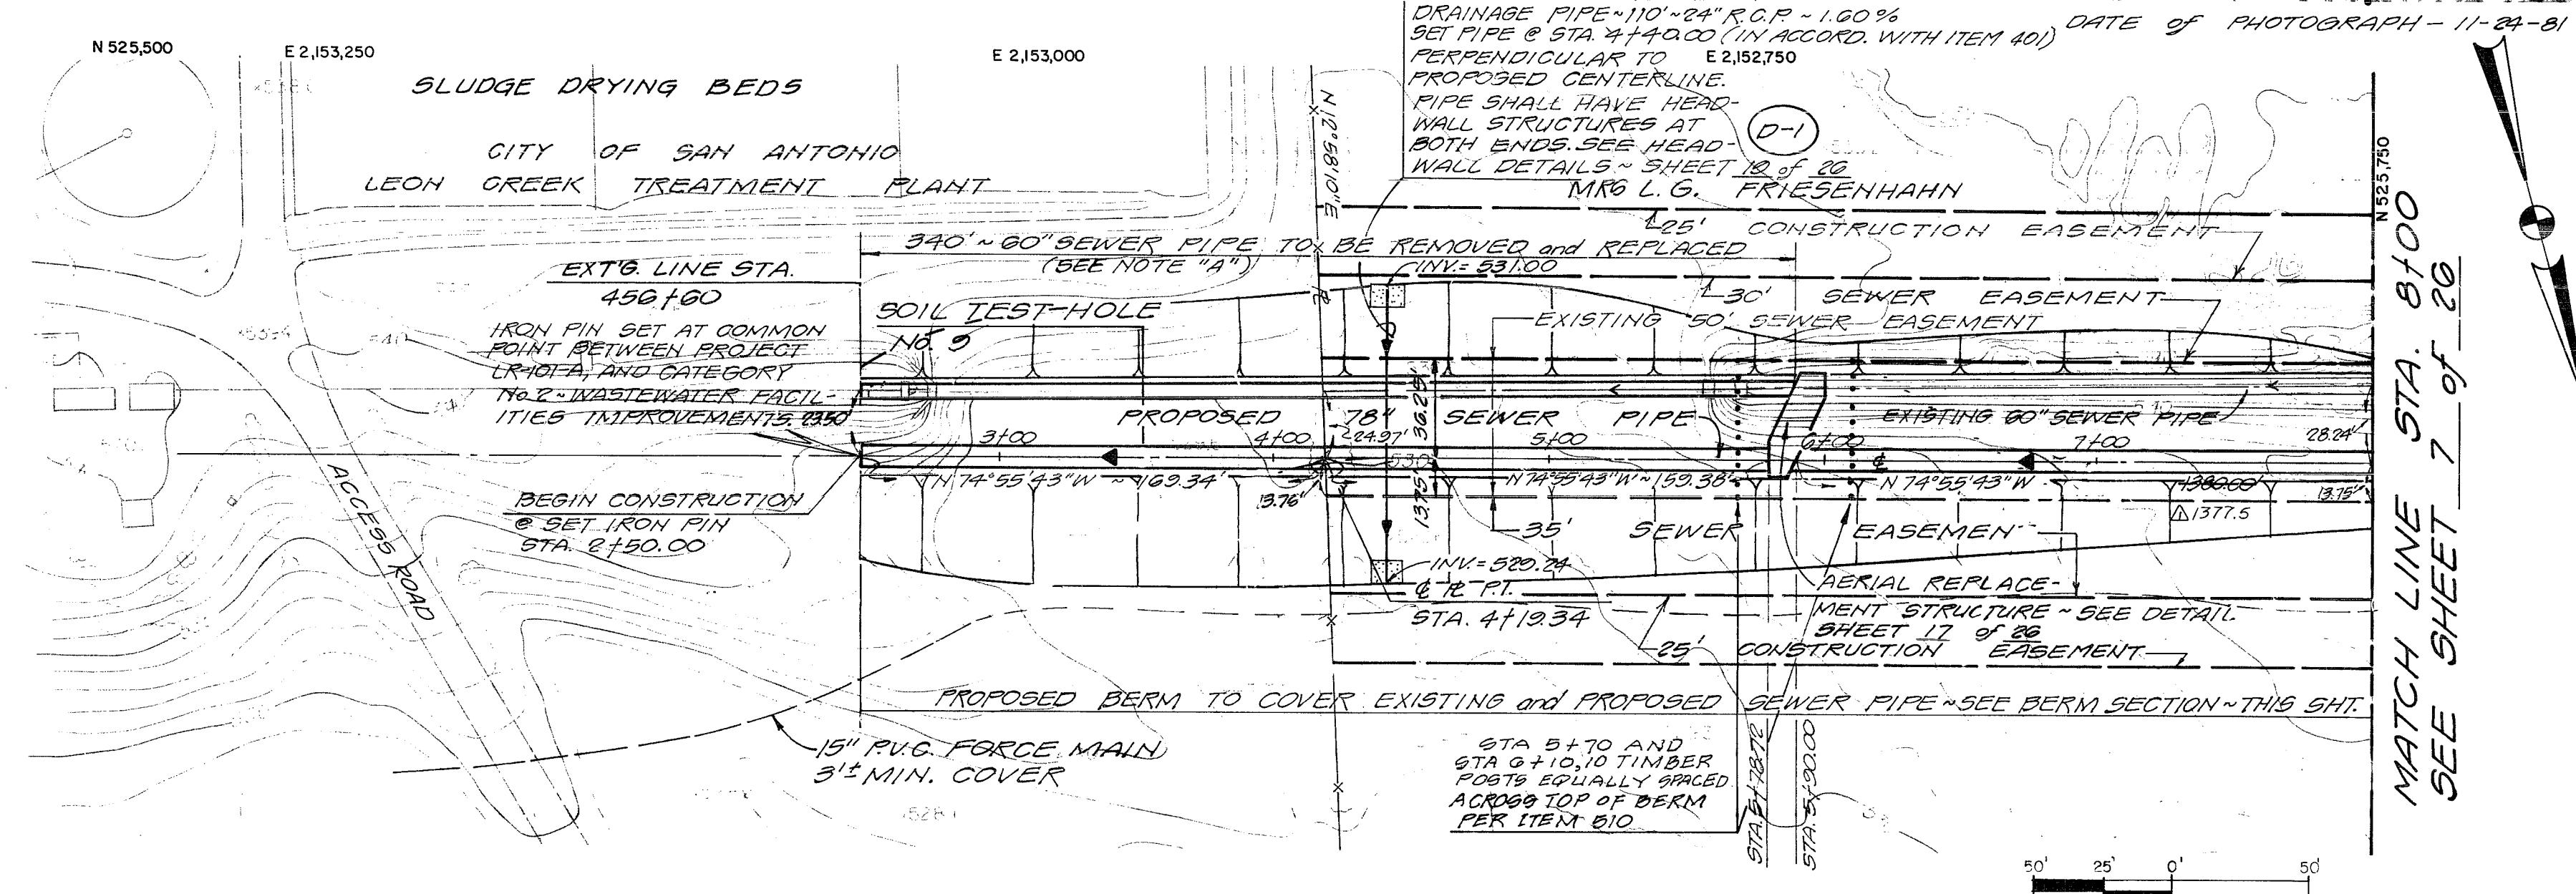 DRAINAGE PIPE ~ 110' ~ 24" R.C.P. ~ 1.60 %
SET PIPE @ STA. 4+40.00 (IN ACCORD. WITH ITEM 401)
PERPENDICULAR TO
PROPOSED CENTERLINE.
PIPE SHALL HAVE HEAD-
WALL STRUCTURES AT
BOTH ENDS. SEE HEAD-
WALL DETAILS ~ SHEET 18 of 26
D-1
DATE of PHOTOGRAPH - 11-24-81
N 525,500
E 2,153,250
E 2,153,000
E 2,152,750
N 525,750
SLUDGE DRYING BEDS
CITY OF SAN ANTONIO
LEON CREEK TREATMENT PLANT
N 12°58'10"E
MRS L. G. FRIESENHAHN
25' CONSTRUCTION EASEMENT
340' ~ 60" SEWER PIPE TO BE REMOVED and REPLACED
(SEE NOTE "A")
INV.= 531.00
EXT'G. LINE STA.
456+60
SOIL TEST-HOLE
No. 9
30' SEWER EASEMENT
EXISTING 50' SEWER EASEMENT
IRON PIN SET AT COMMON
POINT BETWEEN PROJECT
LR-101-A, AND CATEGORY
No. 2 - WASTEWATER FACIL-
ITIES IMPROVEMENTS.
23.50'
PROPOSED 78" SEWER PIPE
EXISTING 60" SEWER PIPE
36.25'
13.75'
3+00
4+00
24.97'
5+00
6+00
7+00
28.24'
530
N 74°55'43"W ~ 169.34'
13.76'
N 74°55'43"W ~ 159.38'
N 74°55'43"W
1380.00'
13.75'
1377.5
BEGIN CONSTRUCTION
@ SET IRON PIN
STA. 2+50.00
ACCESS ROAD
35' SEWER EASEMENT
INV.= 529.24
℄ ⅊ P.I.
STA. 4+19.34
AERIAL REPLACE-
MENT STRUCTURE ~ SEE DETAIL
SHEET 17 of 26
25' CONSTRUCTION EASEMENT
PROPOSED BERM TO COVER EXISTING and PROPOSED SEWER PIPE ~ SEE BERM SECTION ~ THIS SHT.
15" P.V.C. FORCE MAIN
3'± MIN. COVER
STA 5+70 AND
STA 6+10, 10 TIMBER
POSTS EQUALLY SPACED
ACROSS TOP OF BERM
PER ITEM 510
STA. 5+78.72
STA. 5+90.00
MATCH LINE STA. 8+00
SEE SHEET 7 of 26
50' 25' 0' 50'